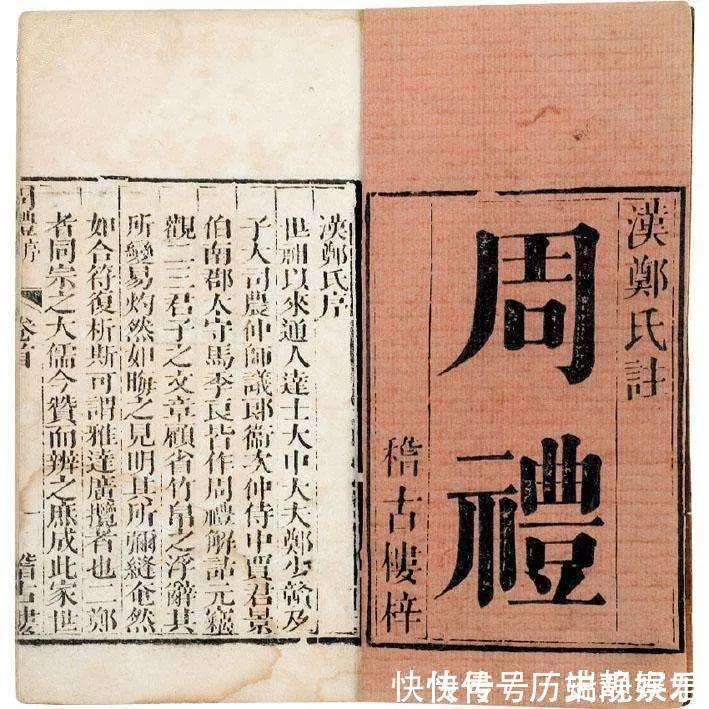 漢鄭氏註
周禮
稽古樓梓
漢鄭氏序
世祖以來通人達士大中大夫鄭少贛及
子大司農仲師議郎衛次仲侍中賈君景
伯南郡太守馬季長皆作周禮解詁元竊
觀二三君子之文章顧省竹帛之浮辭其
所變易灼然如晦之見明其所彌縫奄然
如合符復析斯可謂雅達廣攬者也二鄭
者同宗之大儒今贊而辨之庶成此家世
周禮序 卷首 一 稽古樓
快传号